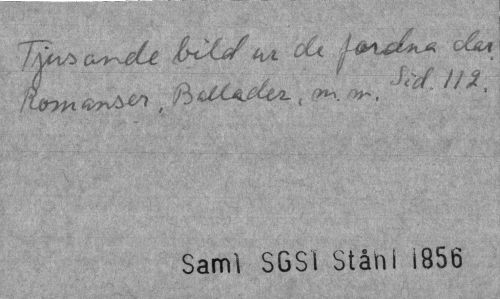 Tjusande bild ur de fordna dar.
Romanser, Ballader, m. m. Sid. 112.
Saml SGSl Ståhl 1856